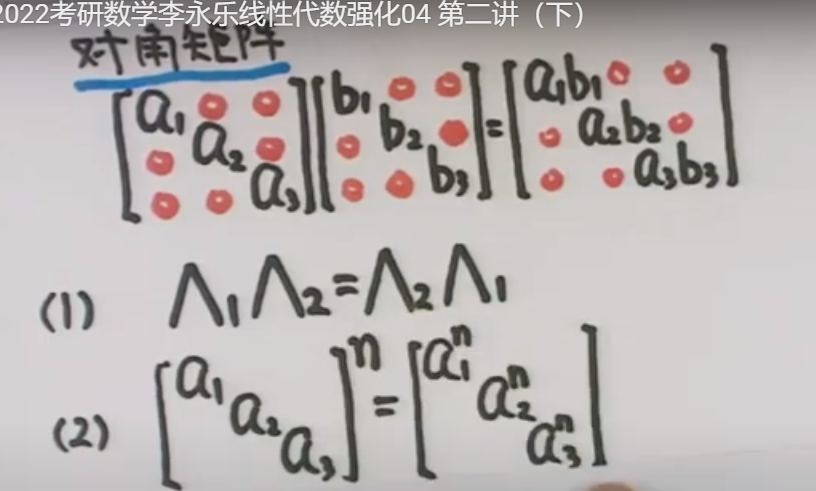 2022考研数学李永乐线性代数强化04 第二讲（下）
对角矩阵
[a₁ 0 0; 0 a₂ 0; 0 0 a₃][b₁ 0 0; 0 b₂ 0; 0 0 b₃]=[a₁b₁ 0 0; 0 a₂b₂ 0; 0 0 a₃b₃]
(1) Λ₁Λ₂=Λ₂Λ₁
(2) [a₁ a₂ a₃]ⁿ=[a₁ⁿ a₂ⁿ a₃ⁿ]